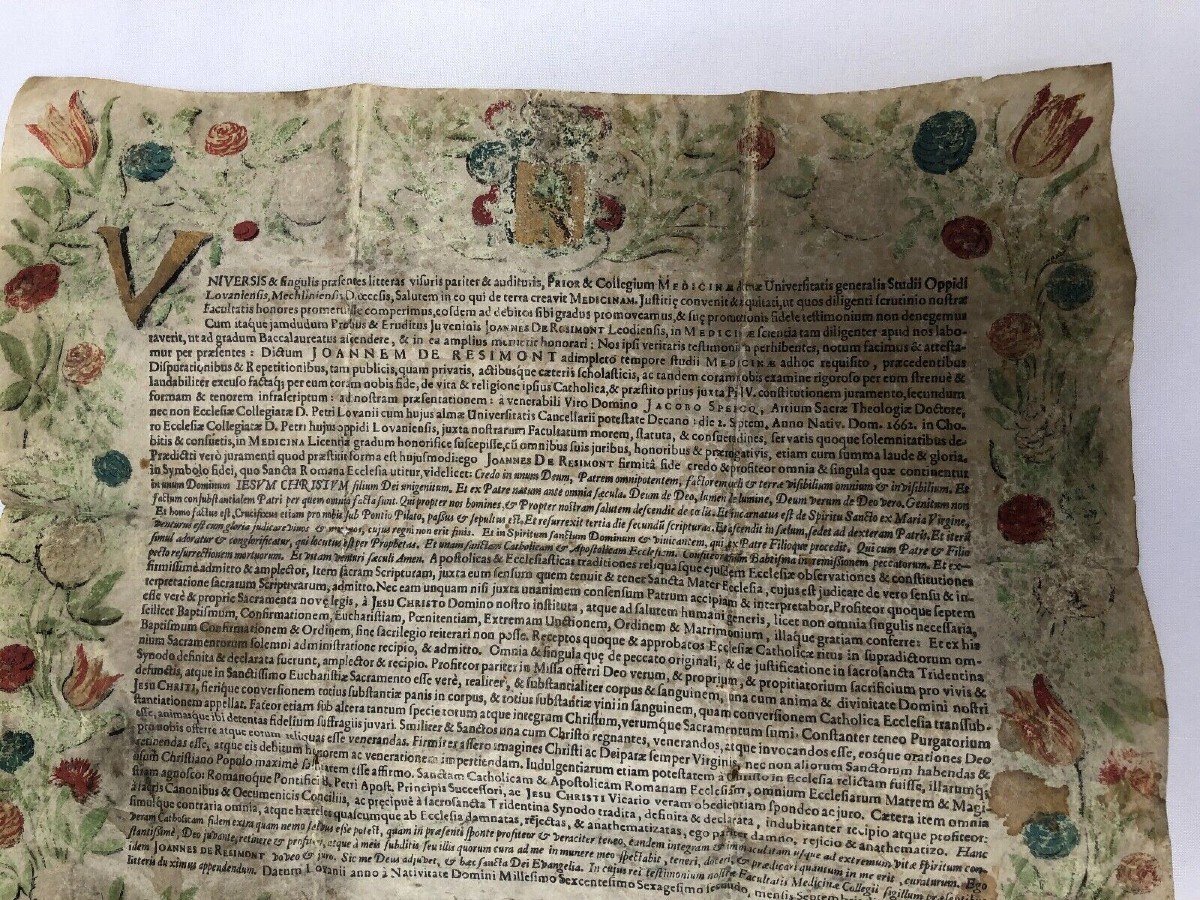 VNIVERSIS & singulis præsentes litteras visuris pariter & audituris, PRIOR & Collegium MEDICINÆ almæ Universitatis generalis Studii Oppidi
Lovaniensis, Mechliniensis Diœcesis, Salutem in eo qui de terra creavit MEDICINAM. Justitię convenit & æquitati, ut quos diligenti scrutinio nostræ
Facultatis honores promeruisse comperimus, eosdem ad debitos sibi gradus promoveamus, & suę promotionis fidele testimonium non denegemus
Cum itaque jamdudum Probus & Eruditus Juveninis JOANNES DE RESIMONT Leodiensis, in MEDICINÆ scientia tam diligenter apud nos labo-
raverit, ut ad gradum Baccalaureatus ascendere, & in ea amplius meruerit honorari: Nos ipsi veritatis testimonium perhibentes, notum facimus & attesta-
mur per præsentes: Dictum JOANNEM DE RESIMONT adimpleto tempore studii MEDICINÆ adhoc requisito, præcedentibus
Disputationibus & Repetitionibus, tam publicis, quam privatis, actibusque cæteris scholasticis, ac tandem coram nobis examine rigoroso per eum strenuè &
laudabiliter excuso factaq; per eum coram nobis fide, de vita & religione ipsius Catholica, & præstito prius juxta Pii V. constitutionem juramento, secundum
formam & tenorem infrascriptum: ad nostram præsentationem: à venerabili Viro Domino JACOBO SPEICQ, Artium Sacræ Theologiæ Doctore,
nec non Ecclesiæ Collegiatæ D. Petri Lovanii cum hujus almæ Universitatis Cancellarii potestate Decano: die 2. Septem, Anno Nativ. Dom. 1662. in Cho-
ro Ecclesiæ Collegiatæ D. Petri hujus oppidi Lovaniensis, juxta nostrarum Facultatum morem, statuta, & consuetudines, servatis quoque solemnitatibus de-
bitis & consuetis, in MEDICINA Licentiæ gradum honorifice suscepisse, cū omnibus suis juribus, honoribus & prærogativis, etiam cum summa laude & gloria.
Prædicti verò juramenti quod præstitit forma est hujusmodi: ego JOANNES DE RESIMONT firmitâ fide credo & profiteor omnia & singula quæ continentur
in Symbolo fidei, quo Sancta Romana Ecclesia utitur, videlicet: Credo in unum Deum, Patrem omnipotentem, factorem cœli & terræ visibilium omnium & invisibilium. Et
in unum Dominum IESUM CHRISTUM filium Dei unigenitum. Et ex Patre natum ante omnia sæcula. Deum de Deo, lumen de lumine, Deum verum de Deo vero. Genitum non
factum consubstantialem Patri per quem omnia facta sunt. Qui propter nos homines, & Propter nostram salutem descendit de cœlis: Et incarnatus est de Spiritu Sancto ex Maria Virgine,
Et homo factus est, Crucifixus etiam pro nobis sub Pontio Pilato, passus & sepultus est, Et resurrexit tertia die secundū scripturas. Et ascendit in cælum, sedet ad dexteram Patris, Et iterū
venturus est cum gloria judicare vivos & mortuos, cujus regni non erit finis. Et in Spiritum sanctum Dominum & vivicantem, qui ex Patre Filioque procedit. Qui cum Patre & Filio
simul adoratur & conglorificatur, qui locutus est per Prophetas. Et unam sanctam Catholicam & Apostolicam Ecclesiam. Confiteor unum Baptisma in remissionem peccatorum. Et ex-
pecto resurrectionem mortuorum. Et vitam venturi sæculi Amen. Apostolicas & Ecclesiasticas traditiones reliquasque ejusdem Ecclesiæ observationes & constitutiones
firmissimè admitto & amplector, Item sacram Scripturam, juxta eum sensum quem tenuit & tenet Sancta Mater Ecclesia, cujus est judicare de vero sensu & in-
terpretatione sacrarum Scripturarum, admitto. Nec eam unquam nisi juxta unanimem consensum Patrum accipiam & interpretabor, Profiteor quoque septem
esse verè & propriè Sacramenta novę legis, à JESU CHRISTO Domino nostro instituta, atque ad salutem humani generis, licet non omnia singulis necessaria,
scilicet Baptismum, Confirmationem, Eucharistiam, Pœnitentiam, Extremam Unctionem, Ordinem & Matrimonium, illaque gratiam conferre: Et ex his
Baptismum Confirmationem & Ordinem, sine sacrilegio reiterari non posse. Receptos quoque & approbatos Ecclesiæ Catholicæ ritus in supradictorum om-
nium Sacramentorum solemni administratione recipio, & admitto. Omnia & singula quę de peccato originali, & de justificatione in sacrosancta Tridentina
Synodo definita & declarata fuerunt, amplector & recipio. Profiteor pariter in Missa offerri Deo verum, & proprium, & propitiatorium sacrificium pro vivis &
defunctis, atque in Sanctissimo Eucharistiæ Sacramento esse verè, realiter, & substantialiter corpus & sanguinem, una cum anima & divinitate Domini nostri
JESU CHRISTI, fierique conversionem totius substantiæ panis in corpus, & totius substantiæ vini in sanguinem, quam conversionem Catholica Ecclesia transsub-
stantiationem appellat. Fateor etiam sub altera tantum specie totum atque integram Christum, verumque Sacramentum sumi. Constanter teneo Purgatorium
esse, animasque ibi detentas fidelium suffragiis juvari. Similiter & Sanctos una cum Christo regnantes, venerandos, atque invocandos esse, eosque orationes Deo
pro nobis offerre atque eorum reliquas esse venerandas. Firmiter assero imagines Christi ac Deiparæ semper Virginis, nec non aliorum Sanctorum habendas &
retinendas esse, atque eis debitum honorem ac venerationem impertiendam, Indulgentiarum etiam potestatem à Christo in Ecclesia relictam fuisse, illarumq;
usum Christiano Populo maximè salutarem esse affirmo. Sanctam Catholicam & Apostolicam Romanam Ecclesiam, omnium Ecclesiarum Matrem & Magi-
stram agnosco: Romanoque Pontifici B. Petri Apost. Principis Successori, ac JESU CHRISTI Vicario veram obedientiam spondeo ac juro. Cætera item omnia
à sacris Canonibus & Oecumenicis Conciliis, ac præcipuè à sacrosancta Tridentina Synodo tradita, definita & declarata, indubitanter recipio atque profiteor:
simulque contraria omnia, atque hæreses quascumque ab Ecclesia damnatas, rejectas, & anathematizatas, ego pariter damno, rejicio & anathematizo. Hanc
veram Catholicam fidem extra quam nemo salvus esse potest, quam in præsenti sponte profiteor & veraciter teneo, eandem integram & immaculatam usque ad extremum vitæ spiritum con-
stantissimè, Deo juvante, retinere & profiteri, atque à meis subditis seu illis quorum cura ad me in munere meo spectabit, teneri, doceri, & prædicari quantum in me erit, curaturum. Ego
idem JOANNES DE RESIMONT voveo & juro. Sic me Deus adjuvet, & hæc sancta Dei Evangelia. In cujus rei testimonium nostræ Facultatis Medicinæ Collegii sigillum præsentibus
litteris duximus appendendum. Datum Lovanii anno à Nativitate Domini Millesimo Sexcentesimo Sexagesimo secundo, mensis Septembris